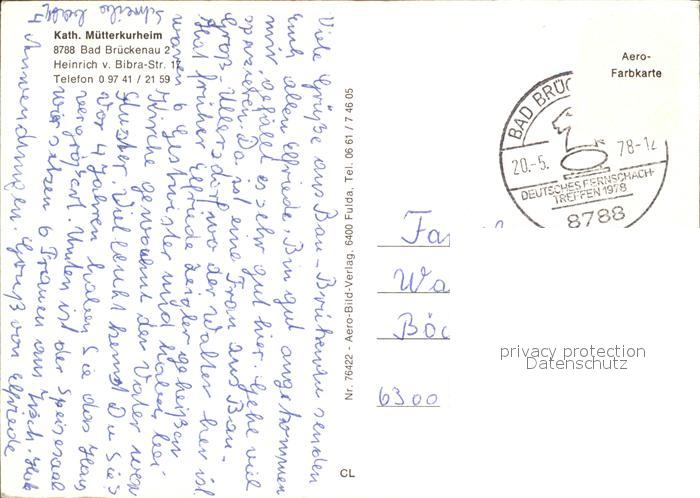 Kath. Mütterkurheim
8788 Bad Brückenau 2
Heinrich v. Bibra-Str. 17
Telefon 0 97 41 / 21 59
Viele Grüße aus Bau-Brükenau senden
Euch allen Elfriede. Bin gut angekommen
mir gefällt es sehr gut hier. Gehe viel
spazieren. Da ist eine Frau aus Bau-
Groß-Ullersdorf wo der Walter her ist
Hat früher Elfriede Zeidler geheißen
waren 6 Gestwister und haben bei
Kirche gewohnt der Vater wen
Schuster Vielleicht kennst Du sie
Vor 4 Jahren haben Sie das Haus
vergrößert. Unten ist der Speisesaal
wir sitzen 6 Frauen am Tisch. Hab
4 Anwendungen. Gruß von Elfriede
Schreibe bald
Nr. 76422 - Aero-Bild-Verlag, 6400 Fulda, Tel. 06 61 / 7 46 05
CL
Aero-
Farbkarte
BAD BRÜC
20.-5. 78-12
DEUTSCHES FERNSCHACH-
TREFFEN 1978
8788
Fa
Wa
Böc
6300
privacy protection
Datenschutz